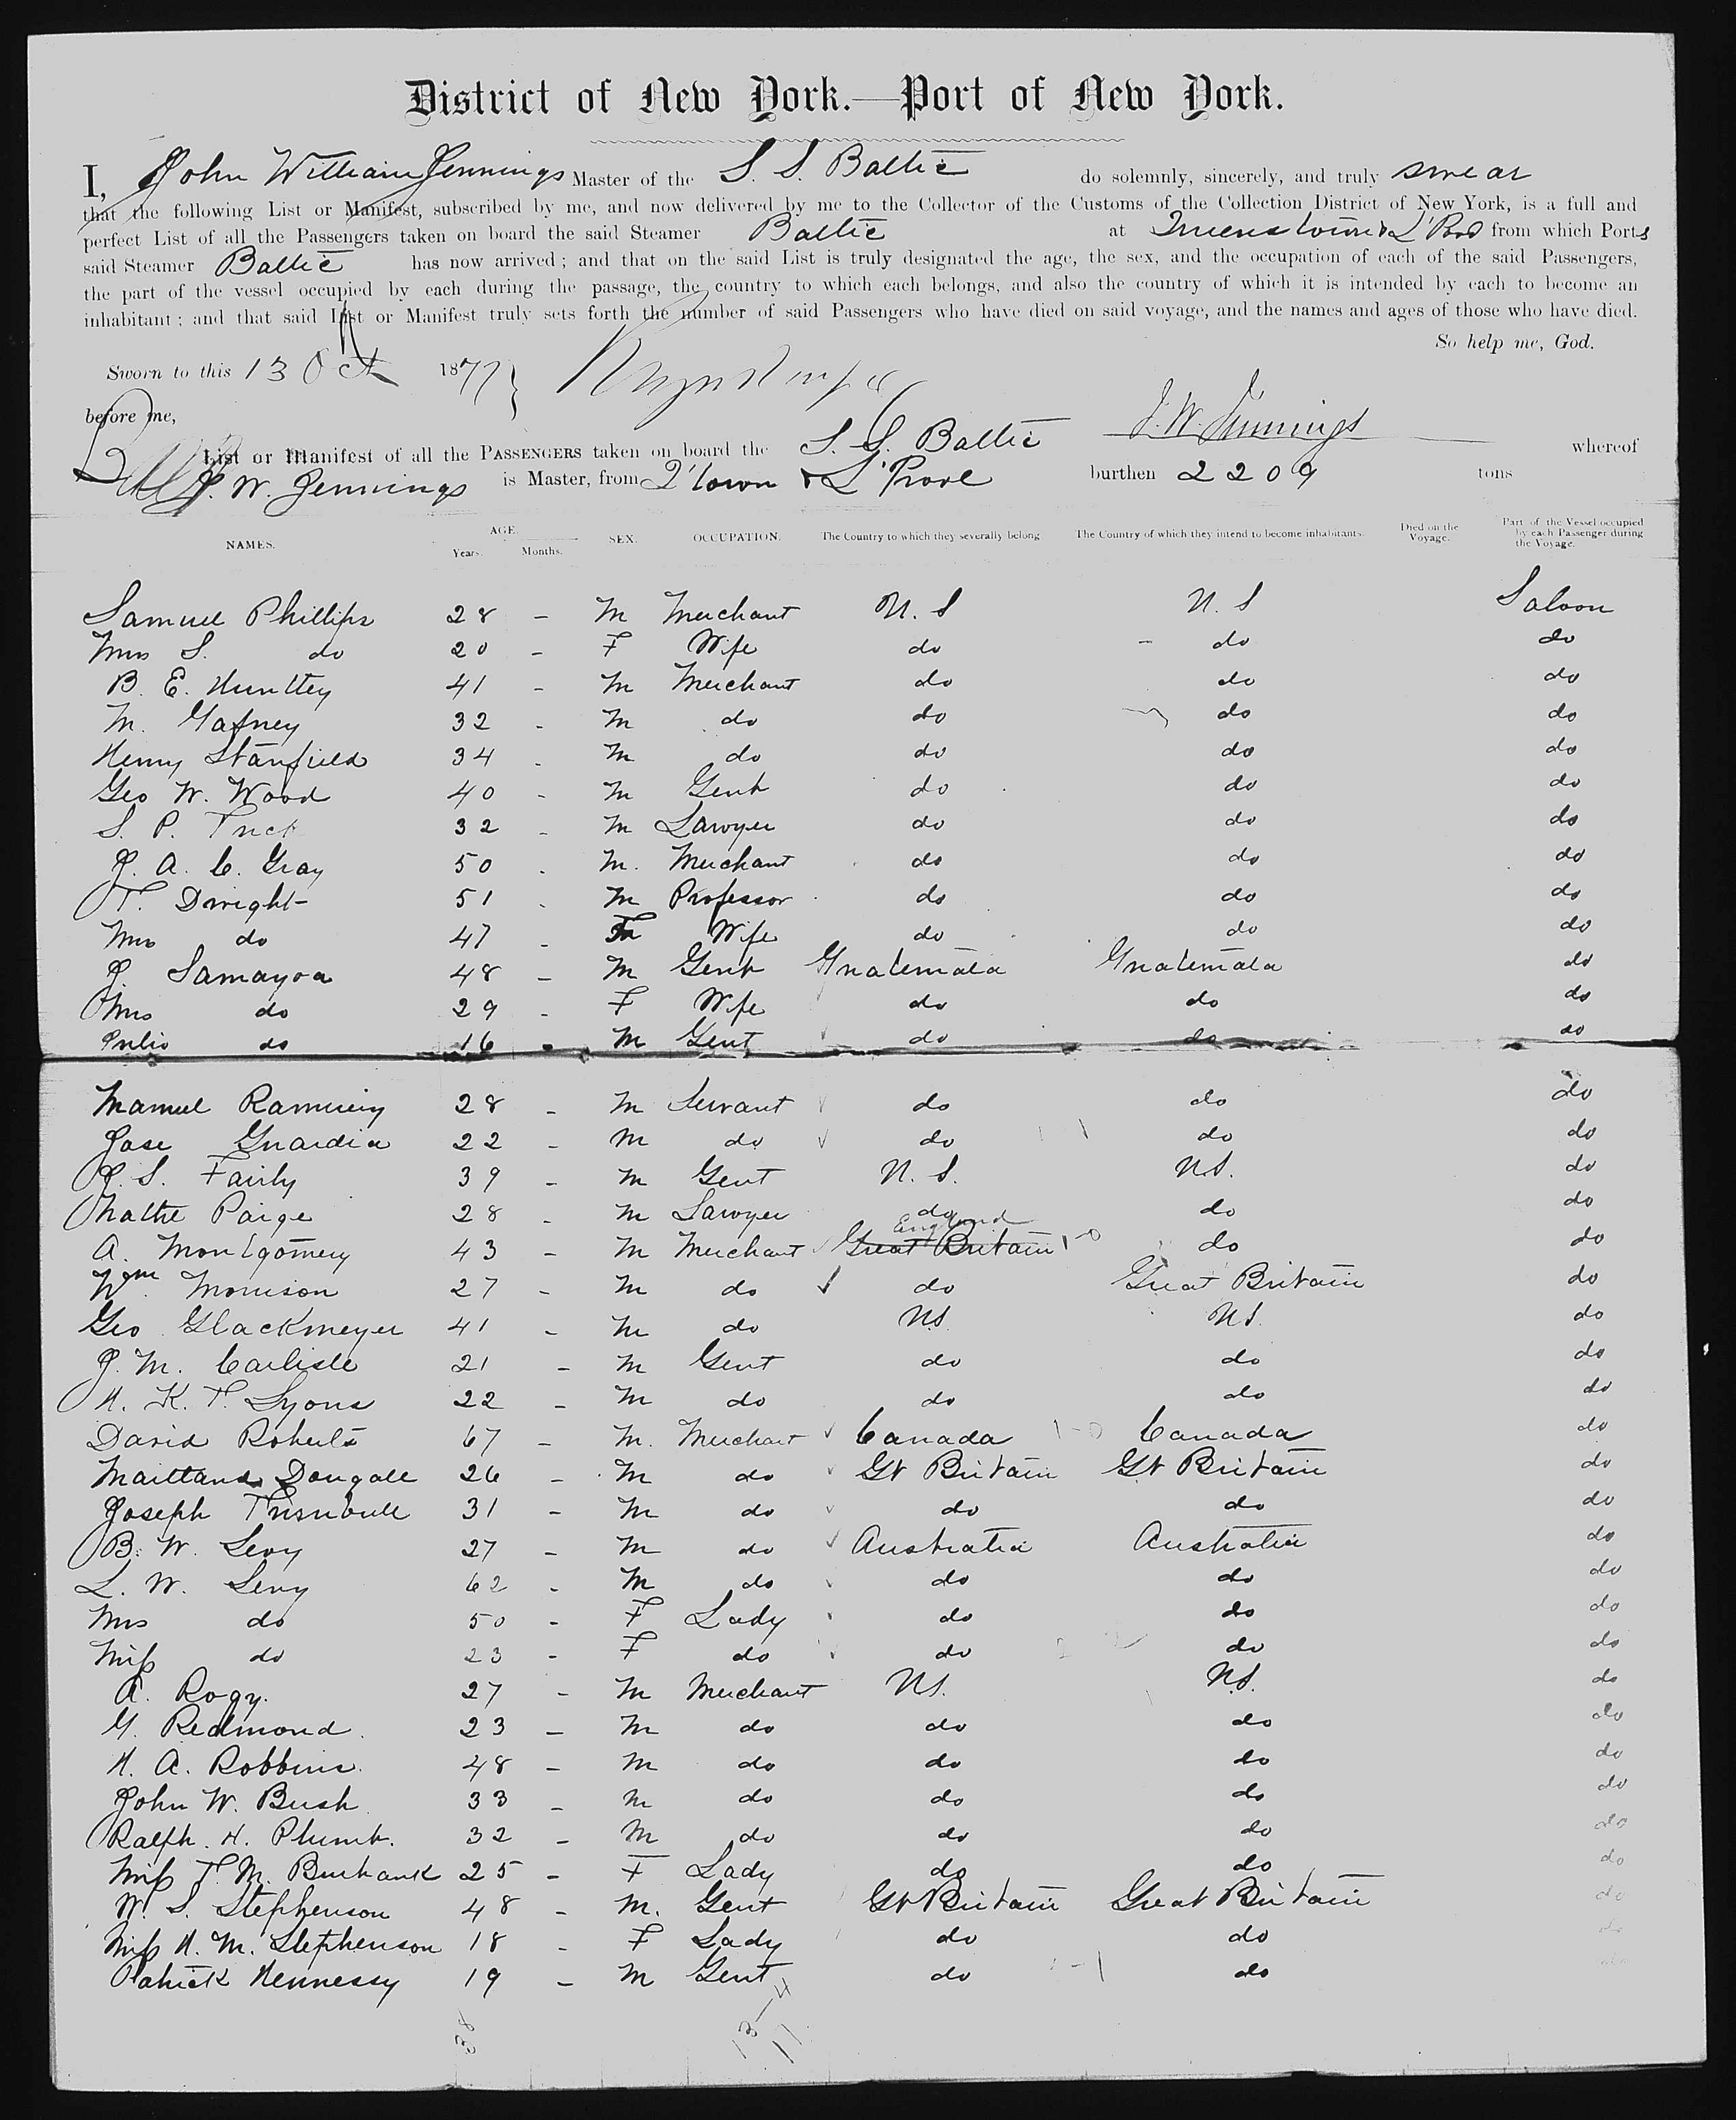 District of New York.—Port of New York.
I, John William Jennings Master of the S. S. Baltic do solemnly, sincerely, and truly swear
that the following List or Manifest, subscribed by me, and now delivered by me to the Collector of the Customs of the Collection District of New York, is a full and
perfect List of all the Passengers taken on board the said Steamer Baltic at Queenstown & L'Pool from which Ports
said Steamer Baltic has now arrived; and that on the said List is truly designated the age, the sex, and the occupation of each of the said Passengers,
the part of the vessel occupied by each during the passage, the country to which each belongs, and also the country of which it is intended by each to become an
inhabitant; and that said List or Manifest truly sets forth the number of said Passengers who have died on said voyage, and the names and ages of those who have died.
So help me, God.
Sworn to this 13 Oct 1877
before me,
J. W. Jennings
List or Manifest of all the PASSENGERS taken on board the S. S. Baltic whereof
J. W. Jennings is Master, from Q'town & L'Pool burthen 2209 tons
NAMES. AGE. Years. Months. SEX. OCCUPATION. The Country to which they severally belong The Country of which they intend to become inhabitants. Died on the Voyage. Part of the Vessel occupied by each Passenger during the Voyage.
Samuel Phillips 28 - M Merchant U.S U.S Saloon
Mrs S. do 20 - F Wife do do do
B. E. Huntley 41 - M Merchant do do do
M. Gafney 32 - M do do do do
Henry Stanfield 34 - M do do do do
Geo W. Wood 40 - M Gent do do do
S. P. 32 - M Lawyer do do do
J. A. C. Gray 50 - M. Merchant do do do
T. Dwight 51 - M Professor do do do
Mrs do 47 - F Wife do do do
J. Samayoa 48 - M Gent Guatemala Guatemala do
Mrs do 29 - F Wife do do do
Julio do 16 - M Gent do do do
Manuel 28 - M Servant do do do
Jose Guardia 22 - M do do do do
J. S. Fairly 39 - M Gent U.S. U.S. do
Nathl Paige 28 - M Lawyer do do do
A. Montgomery 43 - M Merchant Great Britain England do do
Wm Morrison 27 - M do do Great Britain do
Geo Glackmeyer 41 - M do US US. do
J. M. Carlisle 21 - M Gent do do do
H. K. T. Lyons 22 - M do do do do
David Roberts 67 - M. Merchant Canada Canada do
Maitland Dougall 26 - M do Gt Britain Gt Britain do
Joseph Turnbull 31 - M do do do do
B. W. Levy 27 - M do Australia Australia do
L. W. Levy 62 - M do do do do
Mrs do 50 - F Lady do do do
Miss do 23 - F do do do do
A. Rogy. 27 - M Merchant US. US. do
G. Redmond 23 - M do do do do
H. A. Robbins. 48 - M do do do do
John W. Bush 33 - M do do do do
Ralph. H. Plumb. 32 - M do do do do
Miss T. M. Burbank 25 - F Lady do do do
W. S. Stephenson 48 - M. Gent Gt Britain Great Britain do
Miss H. M. Stephenson 18 - F Lady do do do
Patrick Hennessy 19 - M Gent do do
38
13-4
11